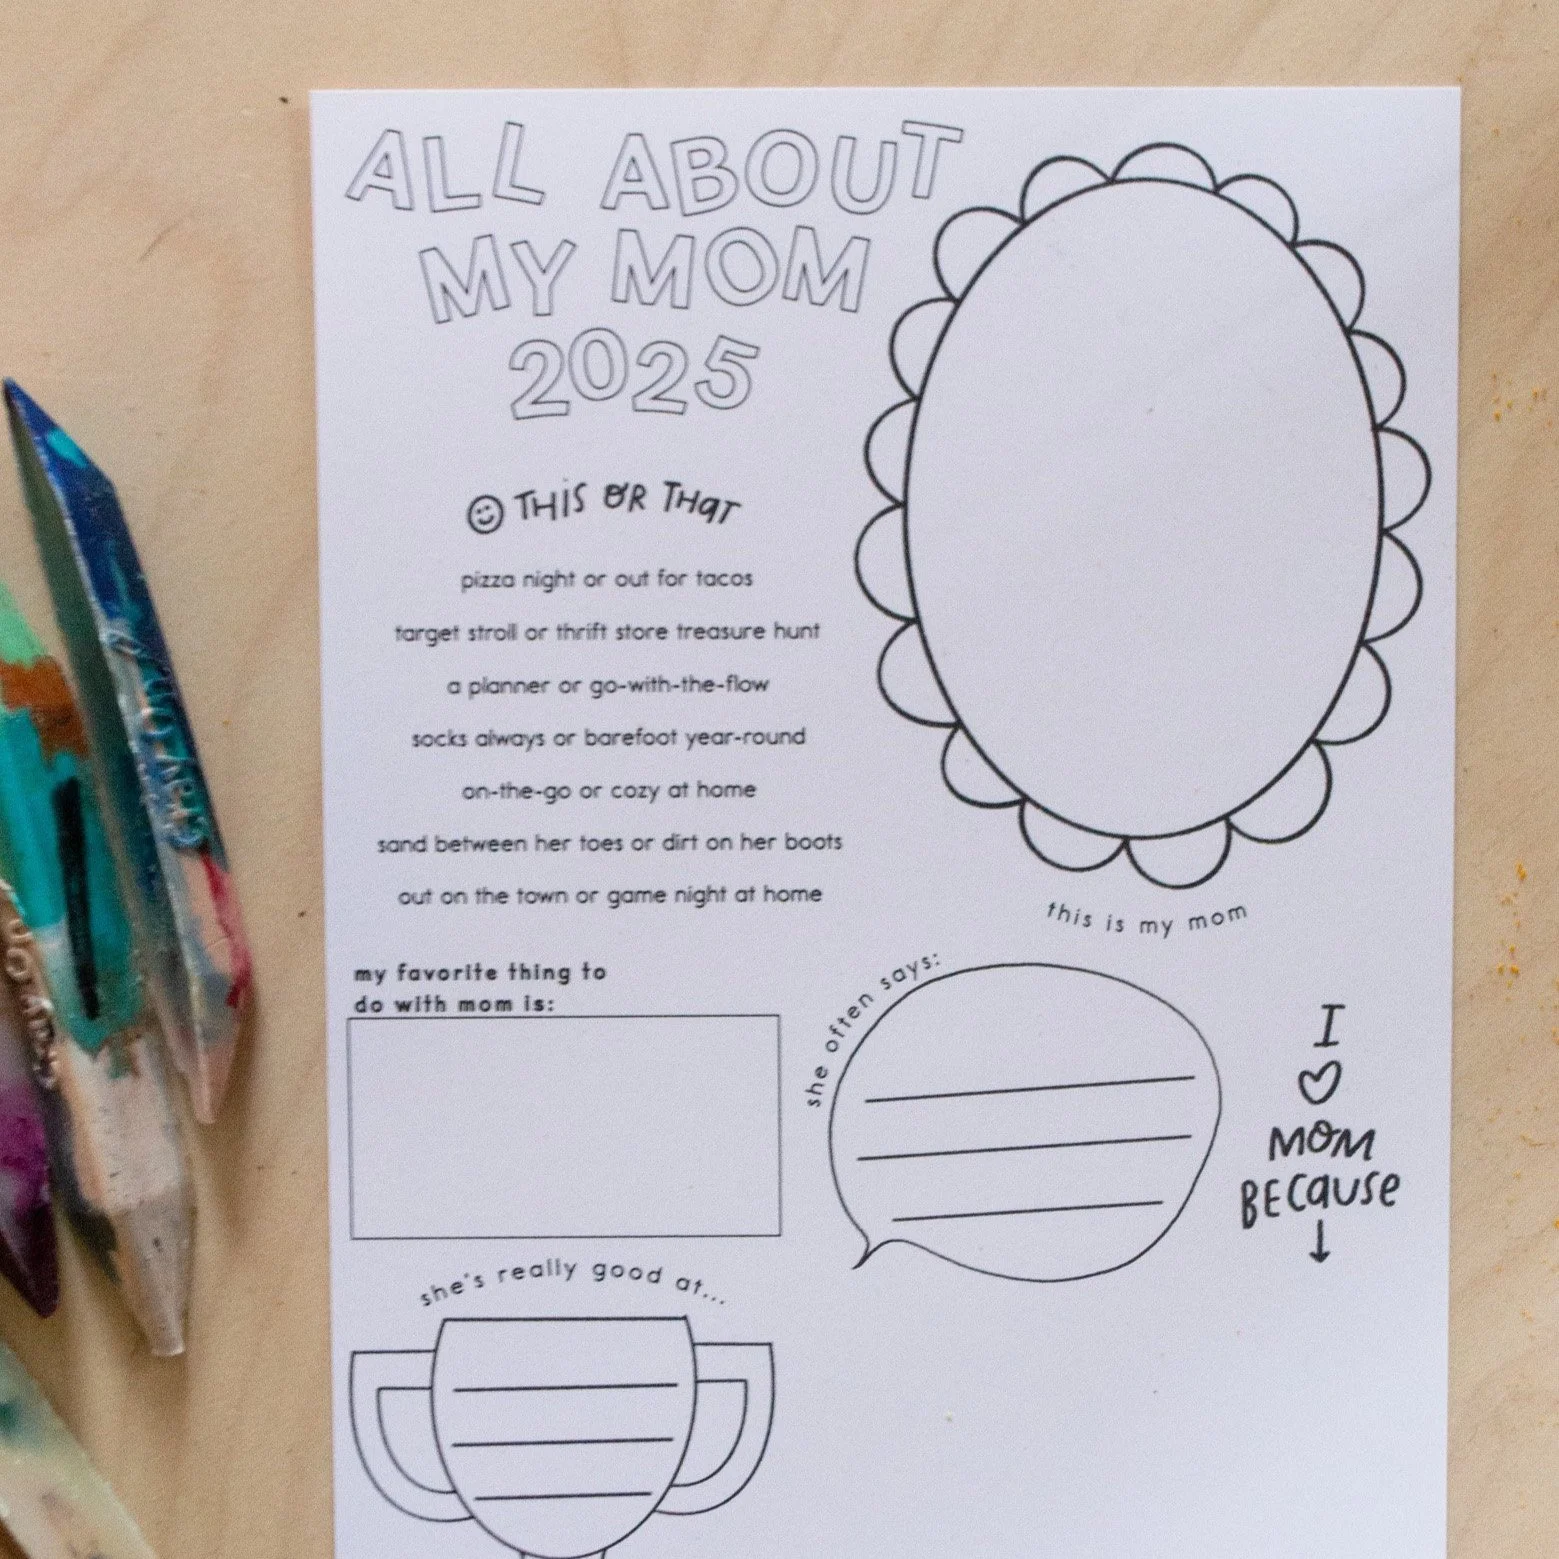 ALL ABOUT
MY MOM
2025
THIS OR THAT
pizza night or out for tacos
target stroll or thrift store treasure hunt
a planner or go-with-the-flow
socks always or barefoot year-round
on-the-go or cozy at home
sand between her toes or dirt on her boots
out on the town or game night at home
this is my mom
my favorite thing to
do with mom is:
she often says:
I
♡
MOM
BECAUSE
↓
she's really good at...